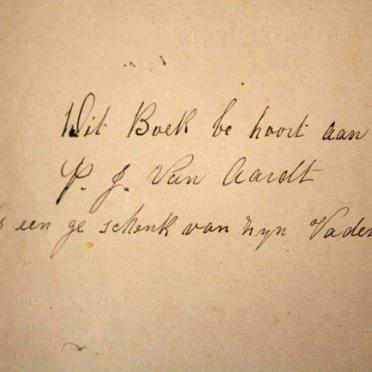 Dit Boek be hoort aan
P. J. Van Aardt
s een ge schenk van zyn Vader